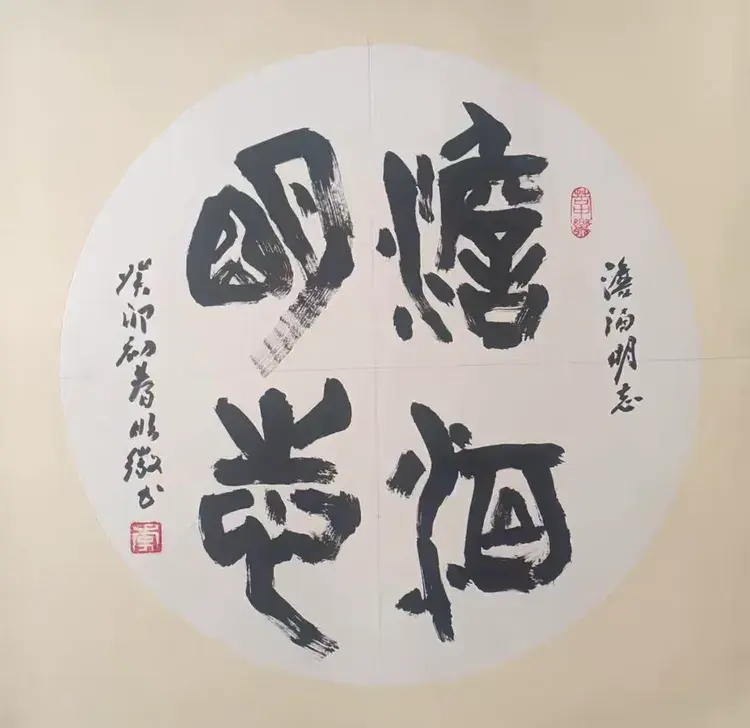 澹泊明志
澹泊
明志
癸卯初春 书